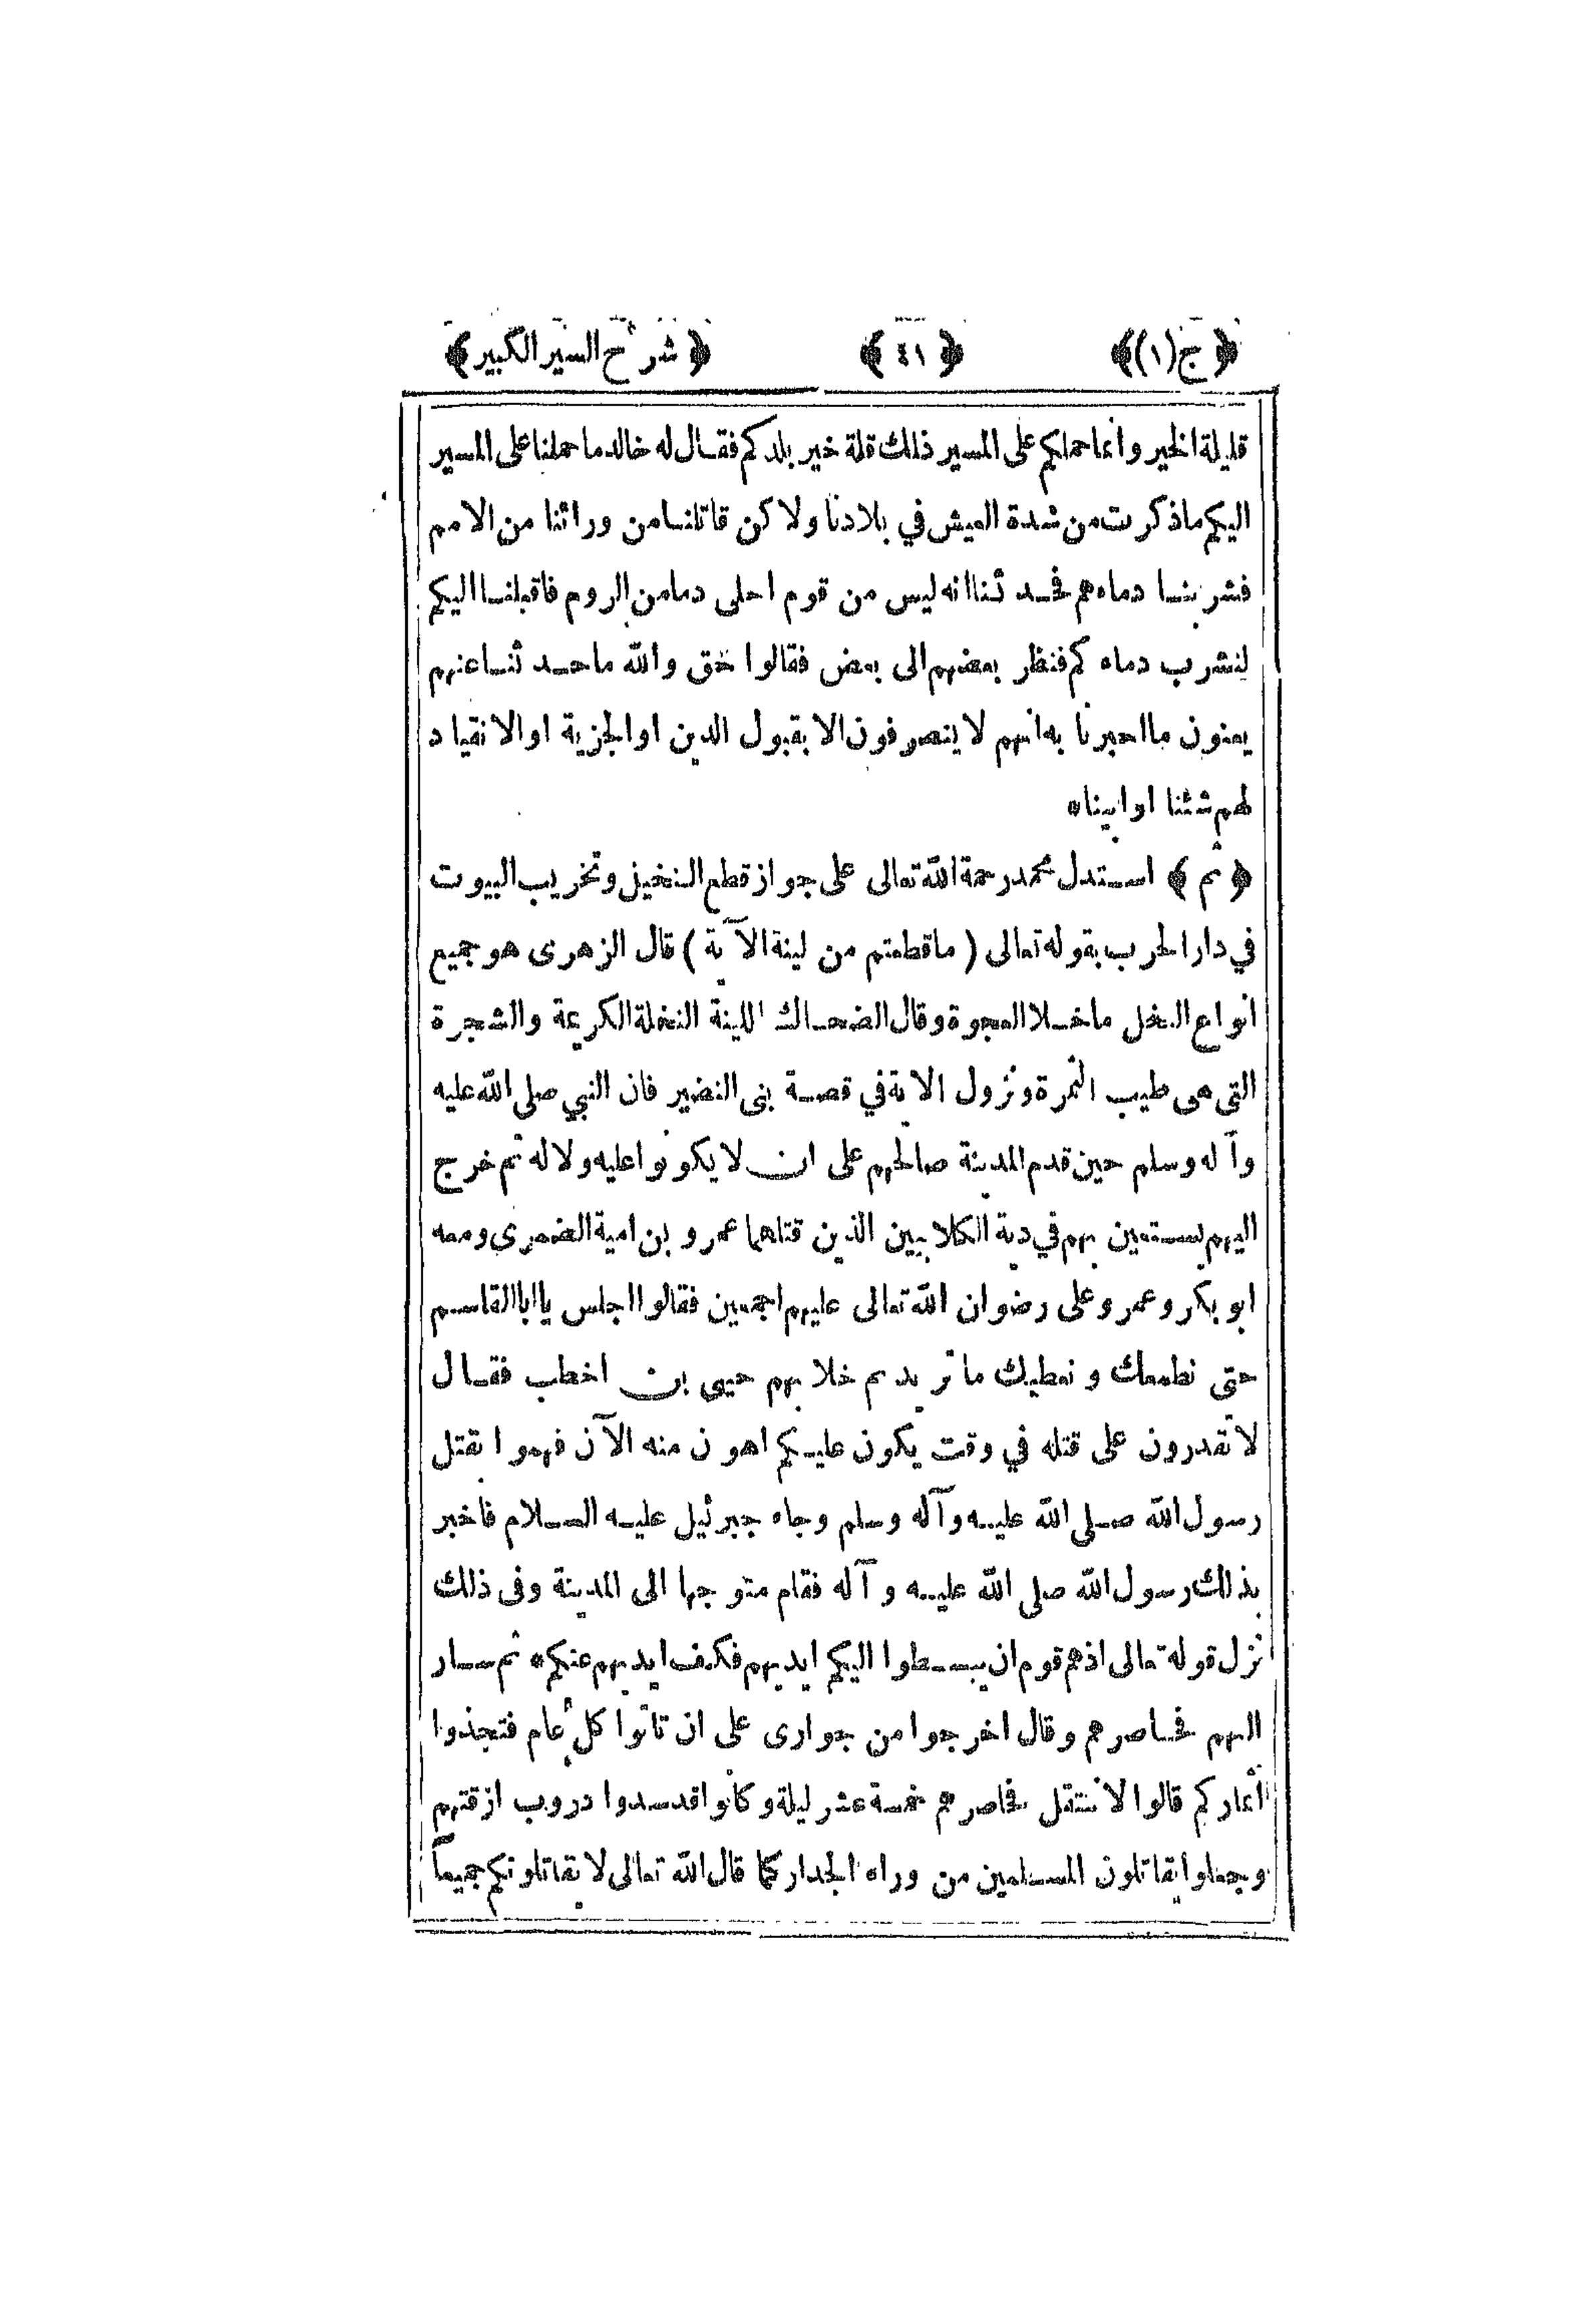 ﴿ ج (١) ﴾ ﴿ ٤١ ﴾ ﴿ شرح السير الكبير ﴾
قليلة الخير وانما حملكم على المسير ذلك قلة خير بلدكم فقال له خالد ما حملنا على المسير
اليكم ما ذكرت من شدة العيش في بلادنا ولاكن قاتلنا من ورائنا من الامم
فشربنا دماءهم فحدثنا انه ليس من قوم احلى دما من الروم فاقبلنا اليكم
لنشرب دماءكم فنظر بعضهم الى بعض فقالوا حق والله ما حدثنا عنهم
يعنون ما اخبرنا به انهم لا ينصرفون الا بقبول الدين او الجزية او الانقياد
لهم شئنا او ابيناه
﴿ ثم ﴾ استدل محمد رحمة الله تعالى على جواز قطع النخيل وتخريب البيوت
في دار الحرب بقوله تعالى ( ما قطعتم من لينة الآية ) قال الزهرى هو جميع
انواع النخل ما خلا العجوة وقال الضحاك اللينة النخلة الكريمة والشجرة
التى هى طيب الثمرة ونزول الاية في قصة بنى النضير فان النبي صلى الله عليه
وآله وسلم حين قدم المدينة صالحهم على ان لا يكونوا عليه ولا له ثم خرج
اليهم يستعين بهم في دية الكلابيين الذين قتلهما عمرو بن امية الضمرى ومعه
ابو بكر وعمر وعلى رضوان الله تعالى عليهم اجمعين فقالوا اجلس يا ابا القاسم
حتى نطعمك ونعطيك ما تريد ثم خلا بهم حيى بن اخطب فقال
لا تقدرون على قتله في وقت يكون عليكم اهون منه الآن فهموا بقتل
رسول الله صلى الله عليه وآله وسلم وجاء جبرئيل عليه السلام فاخبر
بذلك رسول الله صلى الله عليه وآله فقام متوجها الى المدينة وفى ذلك
نزل قوله تعالى اذ هم قوم ان يبسطوا اليكم ايديهم فكف ايديهم عنكم* ثم سار
اليهم فحاصرهم وقال اخرجوا من جوارى على ان تاتوا كل عام فتجذوا
اثماركم قالوا لا ننتقل فحاصرهم خمسة عشر ليلة وكانوا قد سدوا دروب ازقتهم
وجعلوا يقاتلون المسلمين من وراء الجدار كما قال الله تعالى لا يقاتلونكم جميعاً